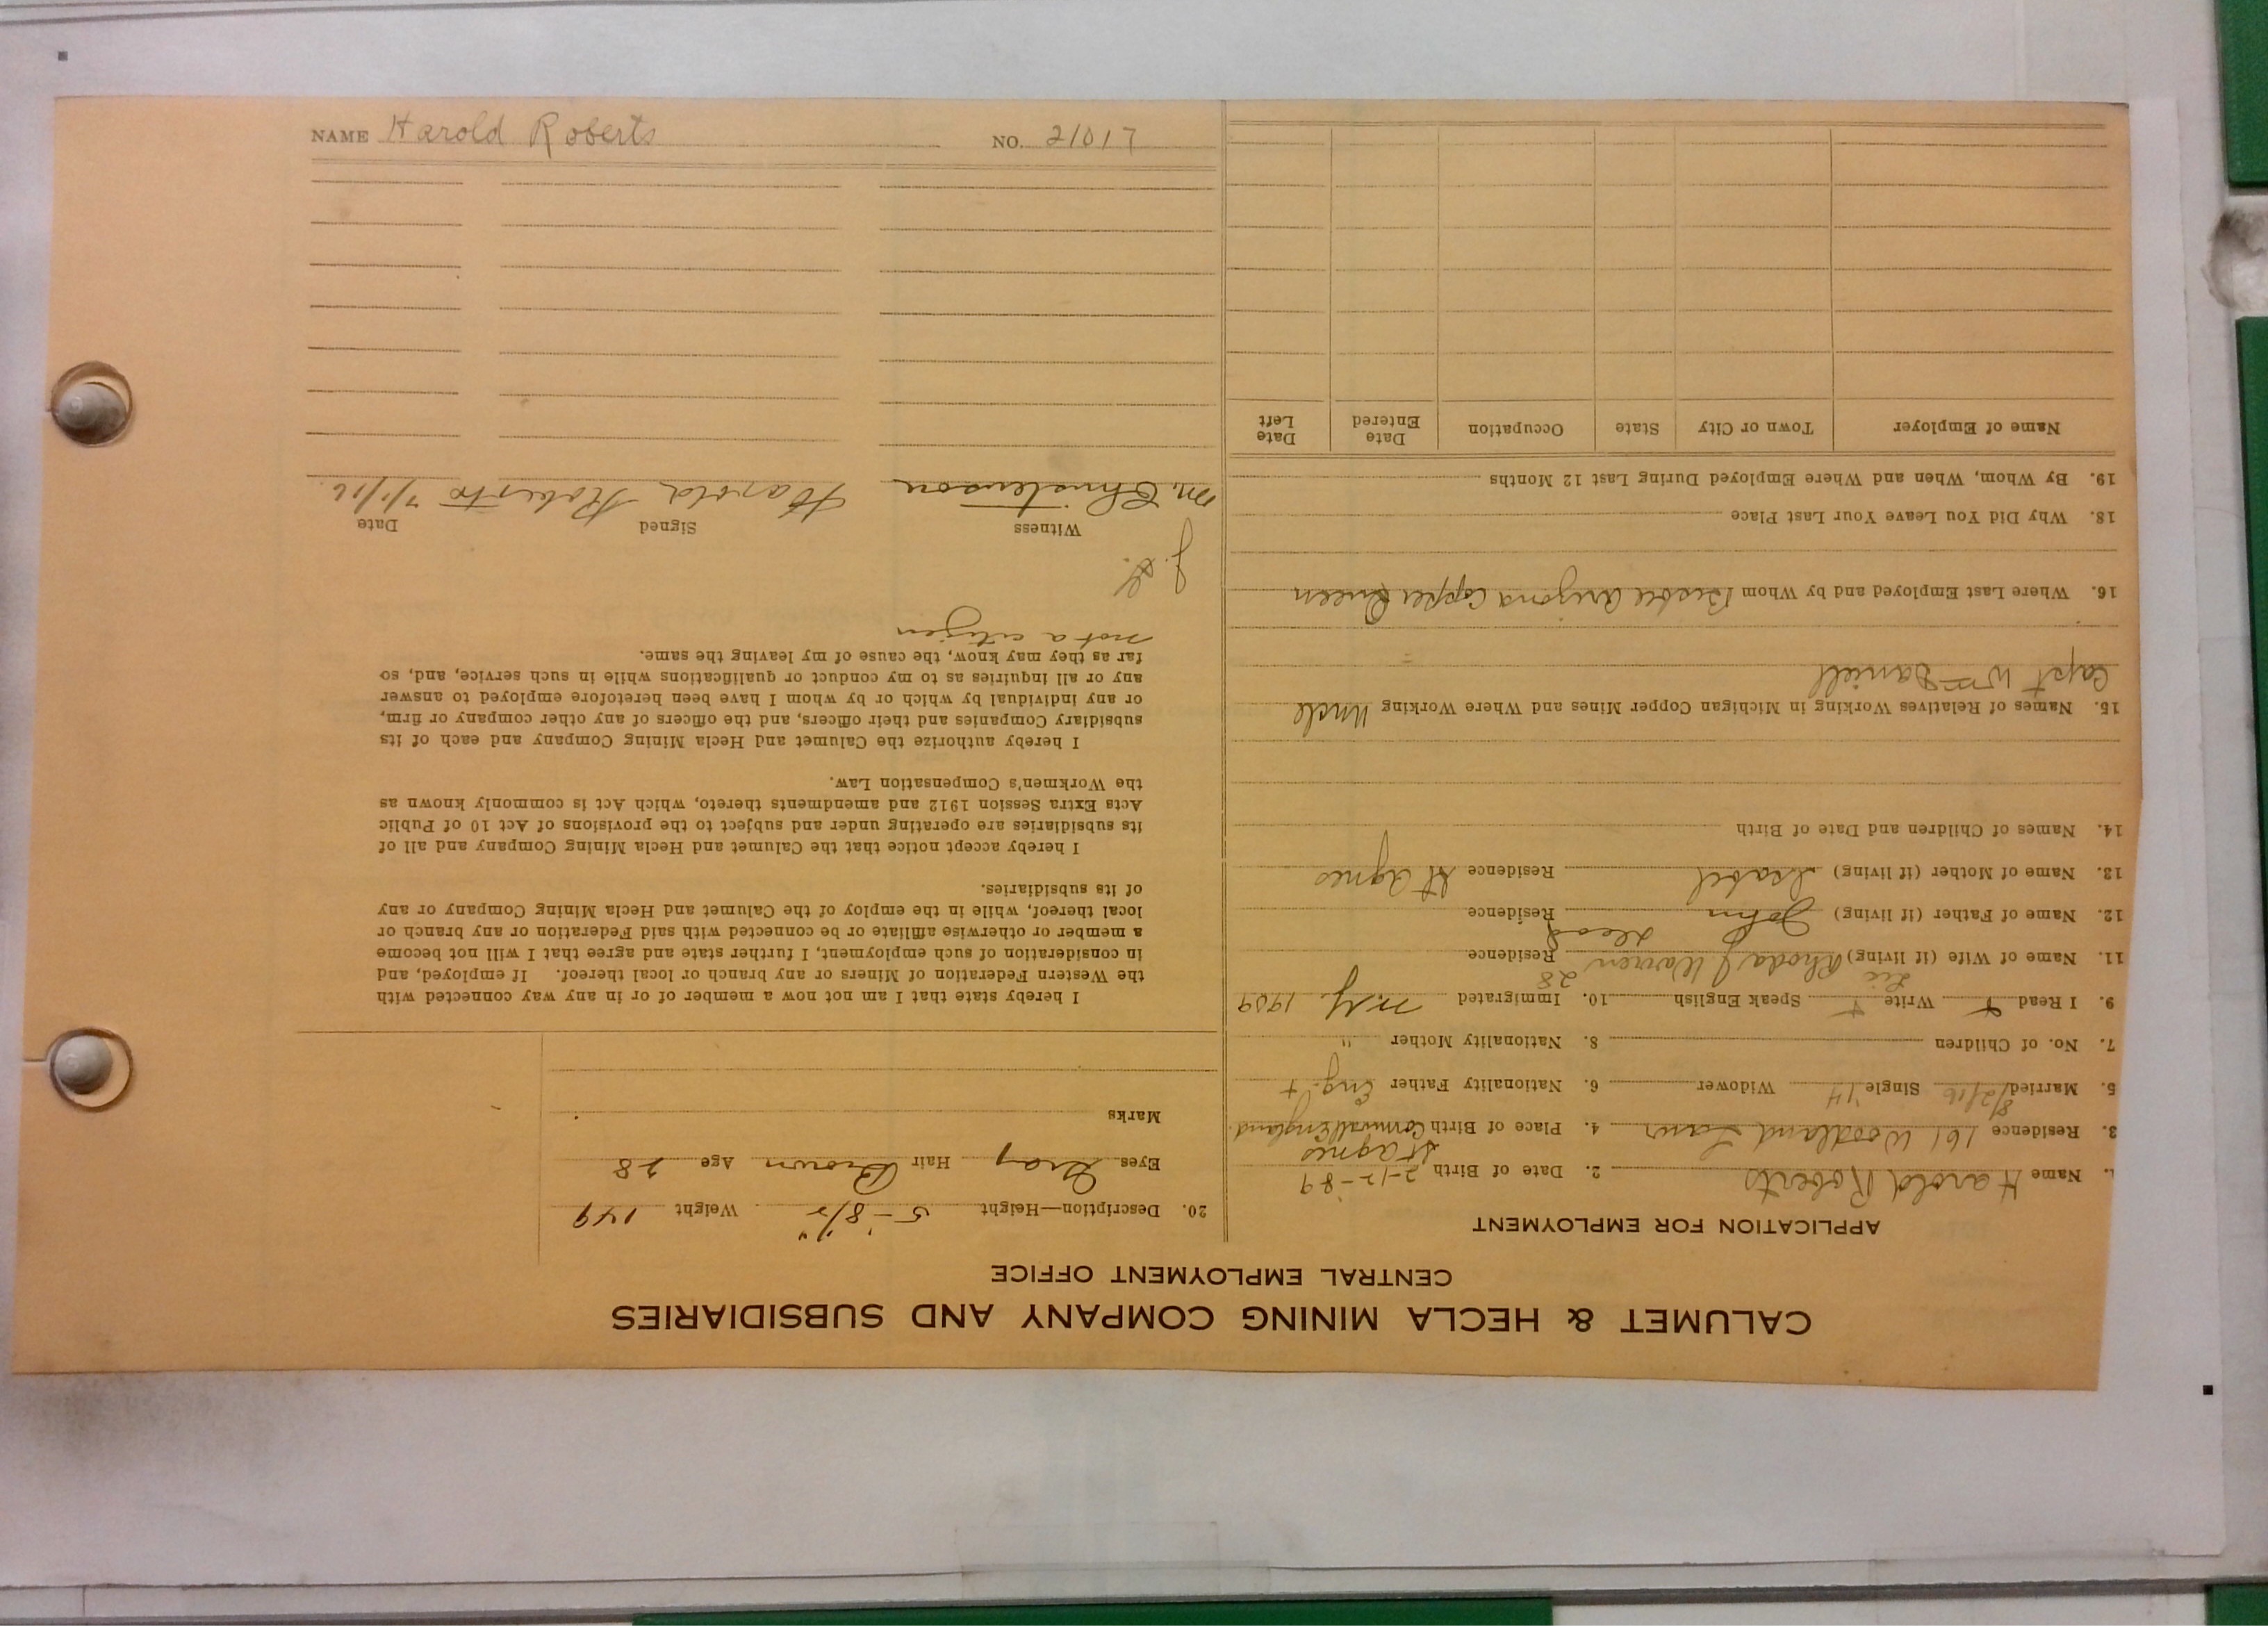 CALUMET & HECLA MINING COMPANY AND SUBSIDIARIES
CENTRAL EMPLOYMENT OFFICE
APPLICATION FOR EMPLOYMENT
1. Name Harold Roberts 2. Date of Birth 2-12-89
St Agnes
3. Residence 161 Woodland 4. Place of Birth Cornwall England.
5. Married 8/2/16 Single Widower 6. Nationality Father Eng.
7. No. of Children 8. Nationality Mother "
9. I Read Write Speak English 10. Immigrated N.Y. 1909
28
11. Name of Wife (if living) Rhoda J Warren Residence
dead
12. Name of Father (if living) John Residence
13. Name of Mother (if living) Isabel Residence St Agnes
14. Names of Children and Date of Birth
15. Names of Relatives Working in Michigan Copper Mines and Where Working Uncle
Capt Wm Daniell
16. Where Last Employed and by Whom Bisbee Arizona Copper Queen
18. Why Did You Leave Your Last Place
19. By Whom, When and Where Employed During Last 12 Months
Name of Employer Town or City State Occupation Date Entered Date Left
20. Description—Height 5-8½" Weight 149
Eyes Gray Hair Brown Age 28
Marks
I hereby state that I am not now a member of or in any way connected with
the Western Federation of Miners or any branch or local thereof. If employed, and
in consideration of such employment, I further state and agree that I will not become
a member or otherwise affiliate or be connected with said Federation or any branch or
local thereof, while in the employ of the Calumet and Hecla Mining Company or any
of its subsidiaries.
I hereby accept notice that the Calumet and Hecla Mining Company and all of
its subsidiaries are operating under and subject to the provisions of Act 10 of Public
Acts Extra Session 1912 and amendments thereto, which Act is commonly known as
the Workmen's Compensation Law.
I hereby authorize the Calumet and Hecla Mining Company and each of its
subsidiary Companies and their officers, and the officers of any other company or firm,
or any individual by which or by whom I have been heretofore employed to answer
any or all inquiries as to my conduct or qualifications while in such service, and, so
far as they may know, the cause of my leaving the same.
not a citizen
Witness Signed Date
M. Christenson Harold Roberts 7/1/16
NAME Harold Roberts NO. 21017